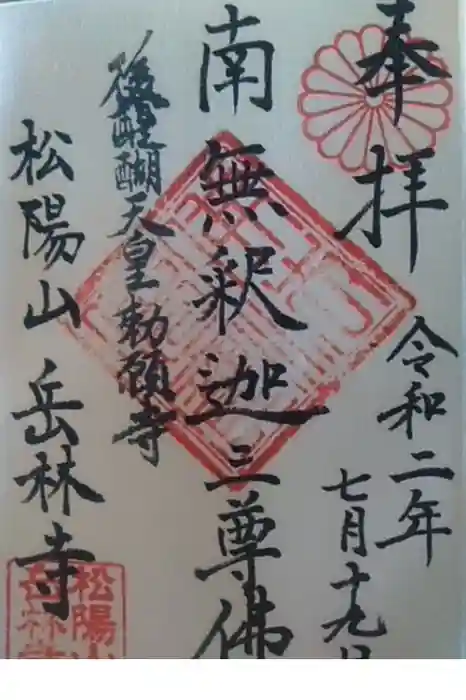 奉拝
令和二年
七月十九日
南無釈迦三尊佛
後醍醐天皇勅願寺
松陽山岳林寺
松陽山
岳林寺